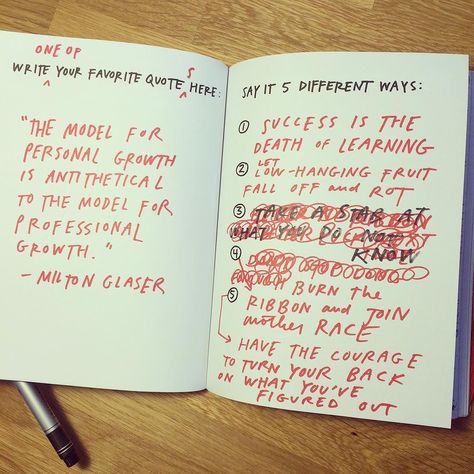 ONE OF
WRITE YOUR FAVORITE QUOTES HERE:
"THE MODEL FOR
PERSONAL GROWTH
IS ANTITHETICAL
TO THE MODEL FOR
PROFESSIONAL
GROWTH."
- MILTON GLASER
SAY IT 5 DIFFERENT WAYS:
① SUCCESS IS THE
DEATH OF LEARNING
② LET
LOW-HANGING FRUIT
FALL OFF and ROT
③ TAKE A STAB AT
WHAT YOU DO NOT
KNOW
④
⑤ BURN the
RIBBON and JOIN
another RACE
HAVE THE COURAGE
TO TURN YOUR BACK
ON WHAT YOU'VE
FIGURED OUT